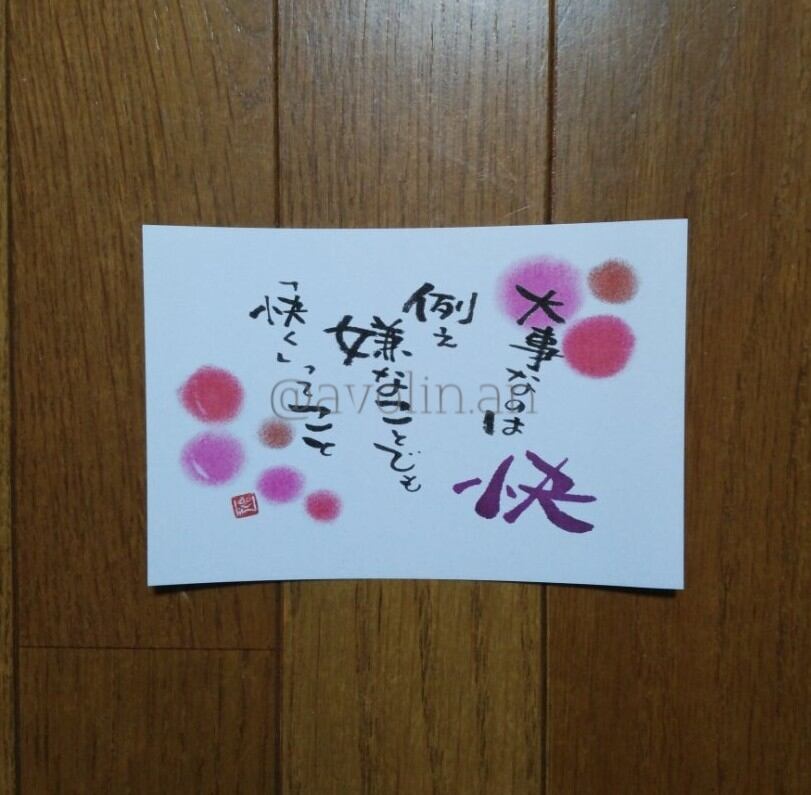 大事なのは
快
例え
嫌なことでも
「快く」ってこと
@avolin.an